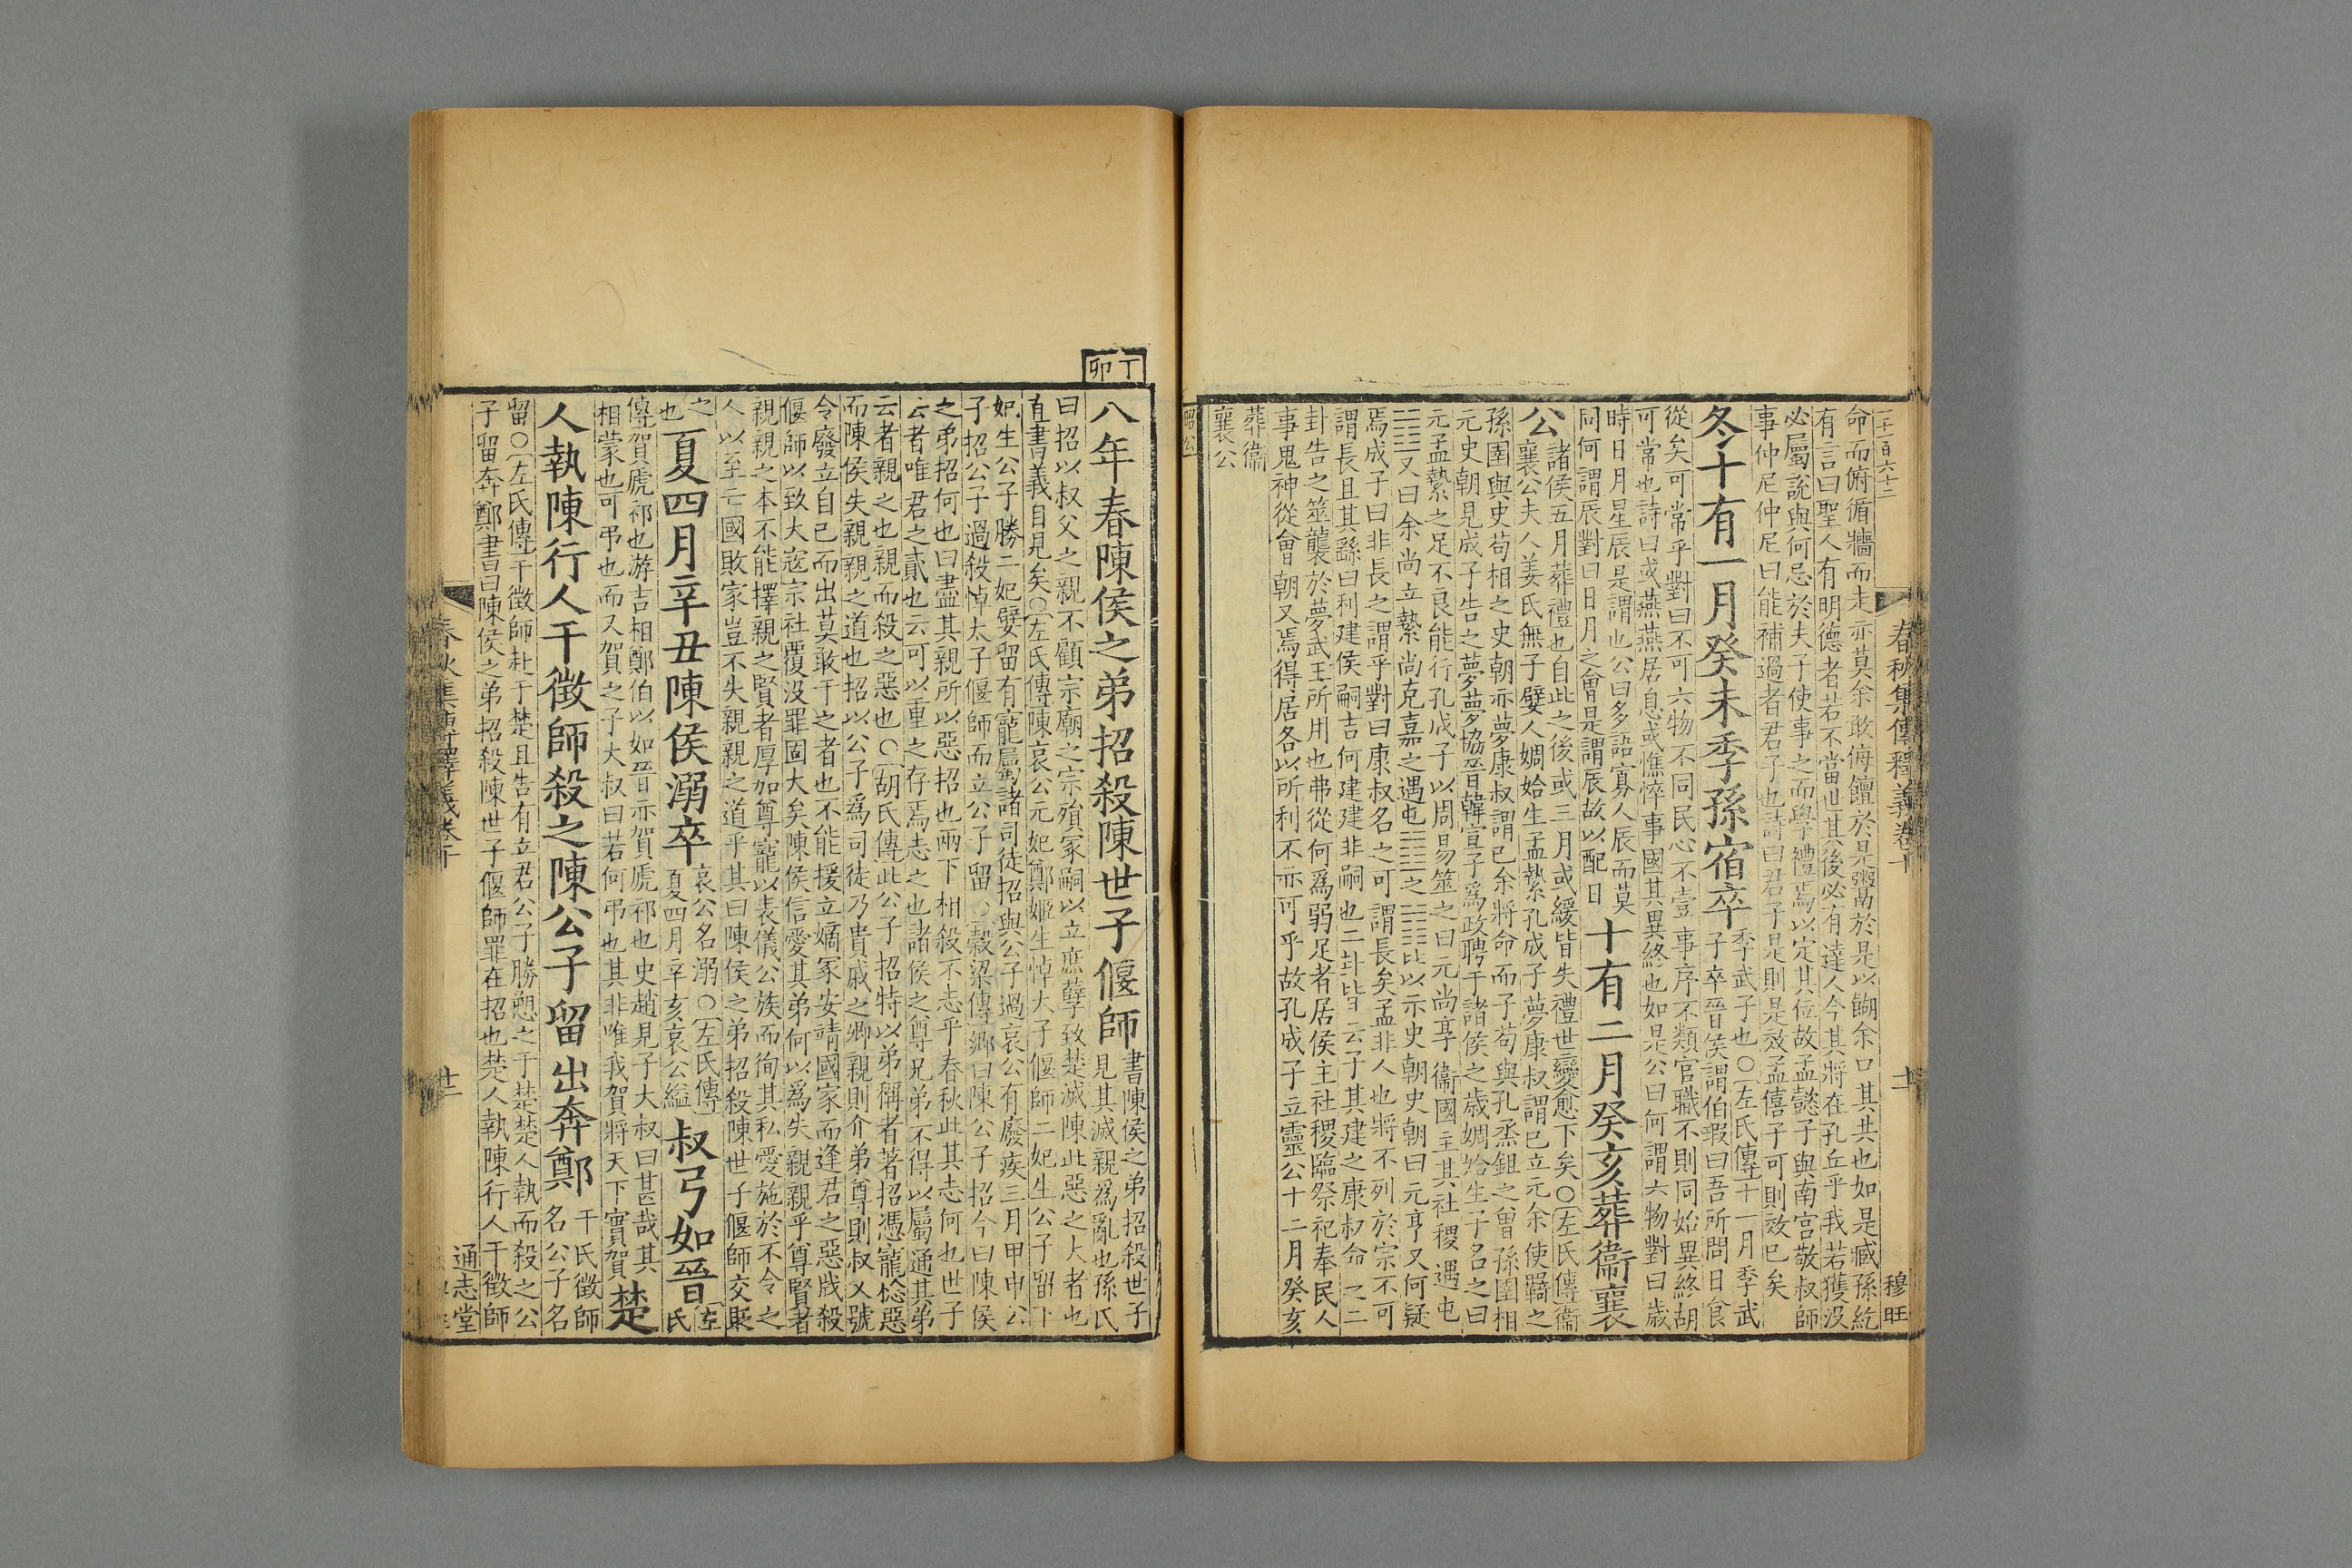 二千一百六十二
春秋集傳釋義卷十
穆旺
命而俯循牆而走亦莫余敢侮饘於是鬻於是以餬余口其共也如是臧孫紇
有言曰聖人有明德者若不當世其後必有達人今其將在孔丘乎我若獲沒
必屬說與何忌於夫子使事之而學禮焉以定其位故孟懿子與南宮敬叔師
事仲尼仲尼曰能補過者君子也詩曰君子是則是效孟僖子可則效已矣
冬十有一月癸未季孫宿卒
季武子也○左氏傳十一月季武
子卒晉侯謂伯瑕曰吾所問日食
從矣可常乎對曰不可六物不同民心不壹事序不類官職不則同始異終胡
可常也詩曰或燕燕居息或憔悴事國其異終也如是公曰何謂六物對曰歲
時日月星辰是謂也公曰多語寡人辰而莫
同何謂辰對曰日月之會是謂辰故以配日
十有二月癸亥葬衞襄
公
諸侯五月葬禮也自此之後或三月或緩皆失禮世變愈下矣○左氏傳衞
襄公夫人姜氏無子嬖人婤姶生孟縶孔成子夢康叔謂己立元余使羈之
孫圉與史苟相之史朝亦夢康叔謂己余將命而子苟與孔烝鉏之曾孫圉相
元史朝見成子告之夢夢協晉韓宣子爲政聘于諸侯之歲婤姶生子名之曰
元孟縶之足不良能行孔成子以周易筮之曰元尚享衞國主其社稷遇屯
又曰余尚立縶尚克嘉之遇屯之比以示史朝史朝曰元亨又何疑
焉成子曰非長之謂乎對曰康叔名之可謂長矣孟非人也將不列於宗不可
謂長且其繇曰利建侯嗣吉何建建非嗣也二卦皆云子其建之康叔命之二
卦告之筮襲於夢武王所用也弗從何爲弱足者居侯主社稷臨祭祀奉民人
事鬼神從會朝又焉得居各以所利不亦可乎故孔成子立靈公十二月癸亥
葬衞
襄公
昭公
丁卯
八年春陳侯之弟招殺陳世子偃師
書陳侯之弟招殺世子
見其滅親爲亂也孫氏
曰招以叔父之親不顧宗廟之宗殞冢嗣以立庶孽致楚滅陳此惡之大者也
直書義自見矣○左氏傳陳哀公元妃鄭姬生悼大子偃師二妃生公子留下
妃生公子勝二妃嬖留有寵屬諸司徒招與公子過哀公有廢疾三月甲申公
子招公子過殺悼太子偃師而立公子留○穀梁傳鄉曰陳公子招今曰陳侯
之弟招何也曰盡其親所以惡招也兩下相殺不志乎春秋此其志何也世子
云者唯君之貳也云可以重之存焉志之也諸侯之尊兄弟不得以屬通其弟
云者親之也親而殺之惡也○胡氏傳此公子招特以弟稱者著招憑寵稔惡
而陳侯失親親之道也招以公子爲司徒乃貴戚之卿親則介弟尊則叔父號
令廢立自己而出莫敢干之者也不能援立嫡冢安靖國家而逢君之惡戕殺
偃師以致大寇宗社覆沒罪固大矣陳侯信愛其弟何以爲失親親乎尊賢者
親親之本不能擇親之賢者厚加尊寵以表儀公族而徇其私愛施於不令之
人以至亡國敗家豈不失親親之道乎其曰陳侯之弟招殺陳世子偃師交貶
之
也
夏四月辛丑陳侯溺卒
哀公名溺○左氏傳
夏四月辛亥哀公縊
叔弓如晉
左
氏
傳賀虒祁也游吉相鄭伯以如晉亦賀虒祁也史趙見子大叔曰甚哉其
相蒙也可弔也而又賀之子大叔曰若何弔也其非唯我賀將天下實賀
楚
人執陳行人干徵師殺之陳公子留出奔鄭
干氏徵師
名公子名
留○左氏傳干徵師赴于楚且告有立君公子勝愬之于楚楚人執而殺之公
子留奔鄭書曰陳侯之弟招殺陳世子偃師罪在招也楚人執陳行人干徵師
春秋集傳釋義卷十
通志堂